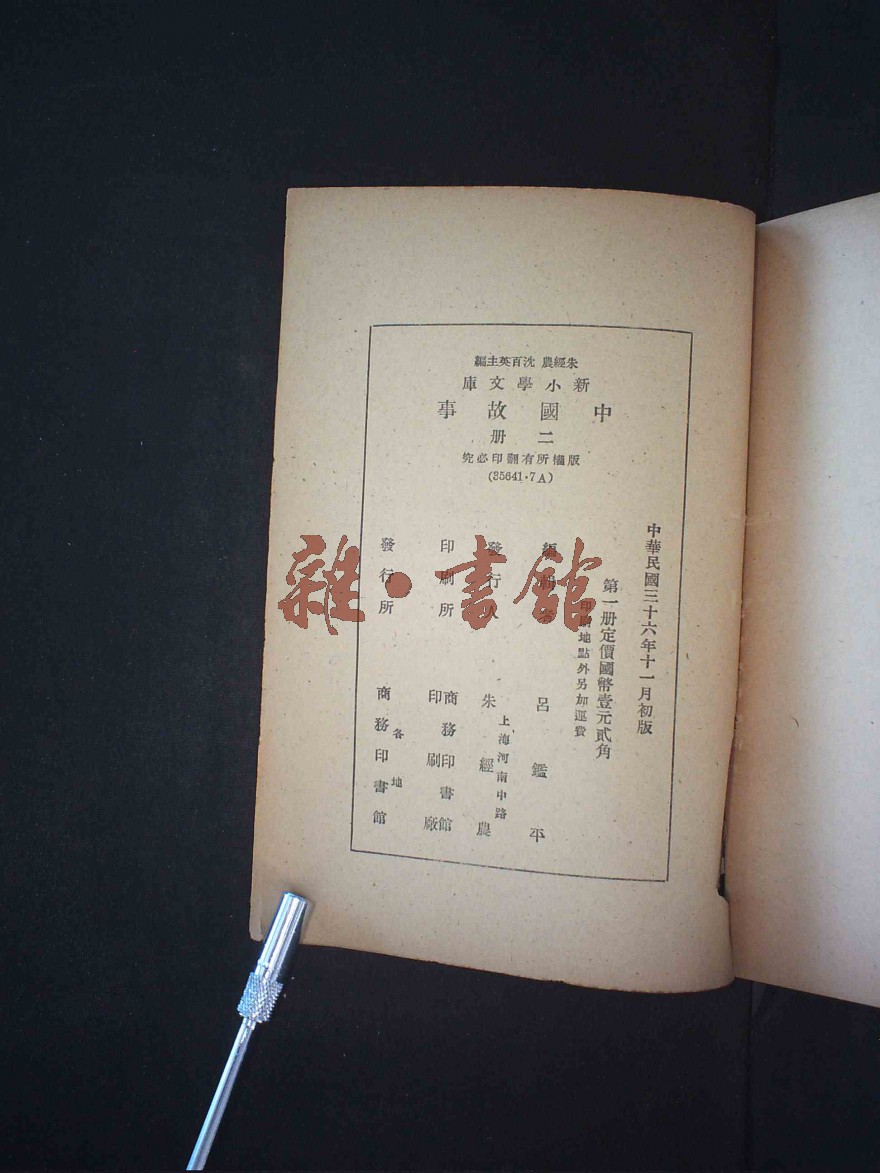 朱經農 沈百英主編
新小學文庫
中國故事
二册
版權所有翻印必究
(35641·7A)
中華民國三十六年十一月初版
第一册定價國幣壹元貳角
印刷地點外另加運費
編輯者 呂鑑平
發行人 朱經農
上海河南中路
印刷所 商務印書館
印刷廠
發行所 各地
商務印書館
雜·書館